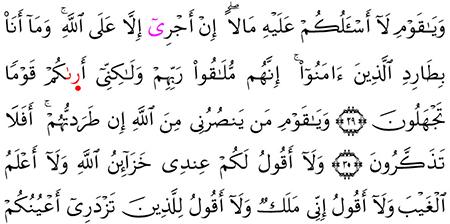 وَيَـٰقَوْمِ لَآ أَسْـَٔلُكُمْ عَلَيْهِ مَالًا ۖ إِنْ أَجْرِىَ إِلَّا عَلَى ٱللَّهِ ۚ وَمَآ أَنَا۠
بِطَارِدِ ٱلَّذِينَ ءَامَنُوٓا۟ ۚ إِنَّهُم مُّلَـٰقُوا۟ رَبِّهِمْ وَلَـٰكِنِّىٓ أَرىٰكُمْ قَوْمًا
تَجْهَلُونَ ﴿٢٩﴾ وَيَـٰقَوْمِ مَن يَنصُرُنِى مِنَ ٱللَّهِ إِن طَرَدتُّهُمْ ۚ أَفَلَا
تَذَّكَّرُونَ ﴿٣٠﴾ وَلَآ أَقُولُ لَكُمْ عِندِى خَزَآئِنُ ٱللَّهِ وَلَآ أَعْلَمُ
ٱلْغَيْبَ وَلَآ أَقُولُ إِنِّى مَلَكٌ وَلَآ أَقُولُ لِلَّذِينَ تَزْدَرِىٓ أَعْيُنُكُمْ